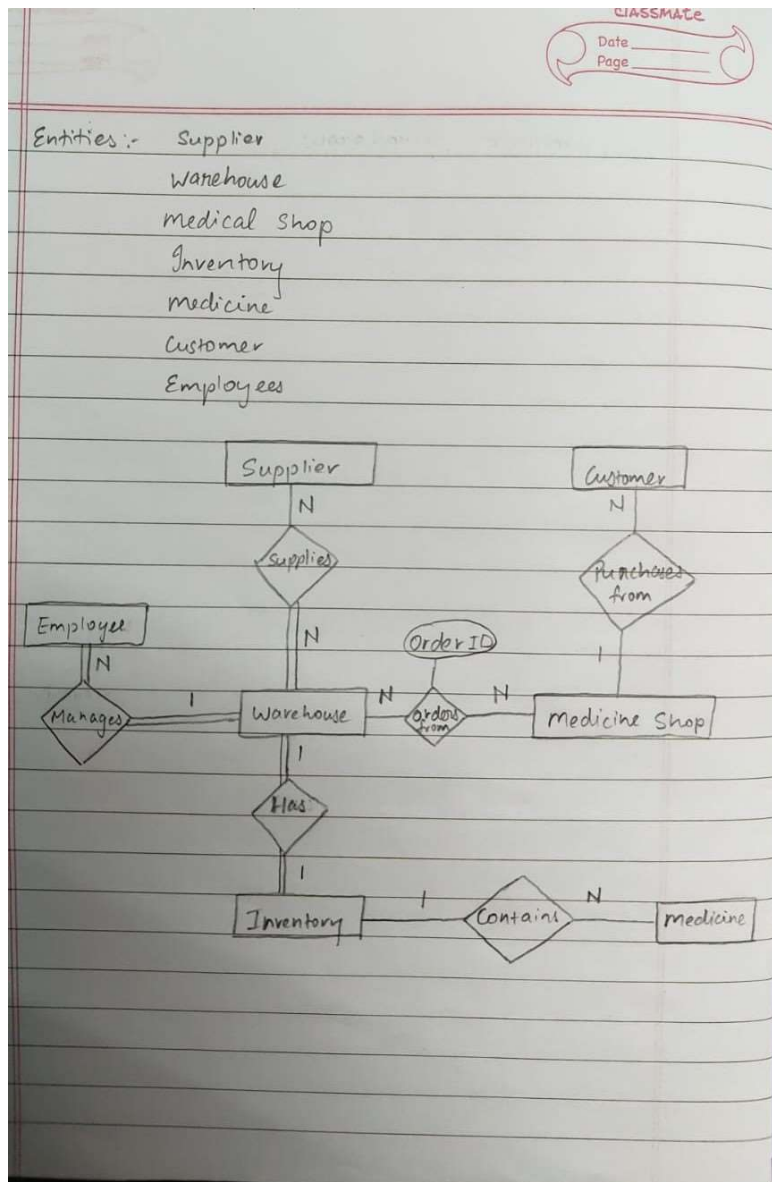 classmate
Date
Page
Entities :- Supplier
Warehouse
Medical Shop
Inventory
Medicine
Customer
Employees
Supplier
Customer
N
N
Supplies
Purchases
from
Employee
Order ID
N
N
1
1
N
N
Manages
Warehouse
Orders
from
Medicine Shop
1
Has
1
1
N
Inventory
Contains
Medicine